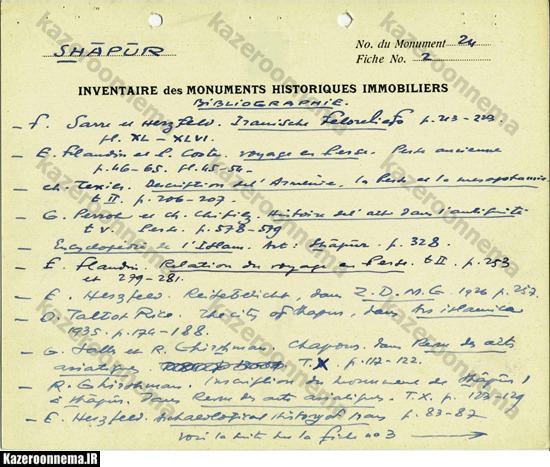 SHĀPŪR
No. du Monument 24
Fiche No. 2
INVENTAIRE des MONUMENTS HISTORIQUES IMMOBILIERS
BIBLIOGRAPHIE.
– F. Sarre et Herzfeld. Iranische Felsreliefs p. 213-223.
pl. XL – XLVI.
– E. Flandin et P. Coste. Voyage en Perse. Perse ancienne
p. 46-65. pl. 45-54.
– Ch. Texier. Description de l'Arménie, la Perse et la Mesopotamie
t II. p. 206-207.
– G. Perrot et Ch. Chipiez. Histoire de l'art dans l'antiquité
t V. Perse. p. 578-579
– Encyclopédie de l'Islam. Art: Shāpūr. p. 328.
– E. Flandin. Relation du voyage en Perse. t II. p. 253
et 279-281.
– E. Herzfeld. Reisebericht, dans Z.D.M.G. 1926 p. 257.
– D. Talbot Rice. The city of Shapur, dans Ars islamica
1935. p. 174-188.
– G. Salles et R. Ghirshman. Chapour. dans Revue des arts
asiatiques T. X. p. 117-122.
– R. Ghirshman. Inscription du monument de Shāpūr I
à Shāpūr. dans Revue des arts asiatiques. T. X. p. 123-129
– E. Herzfeld. Archaeological History of Iran p. 83-87
Voir la suite sur la fiche no 3
kazeroonnema
Kazeroonnema.IR